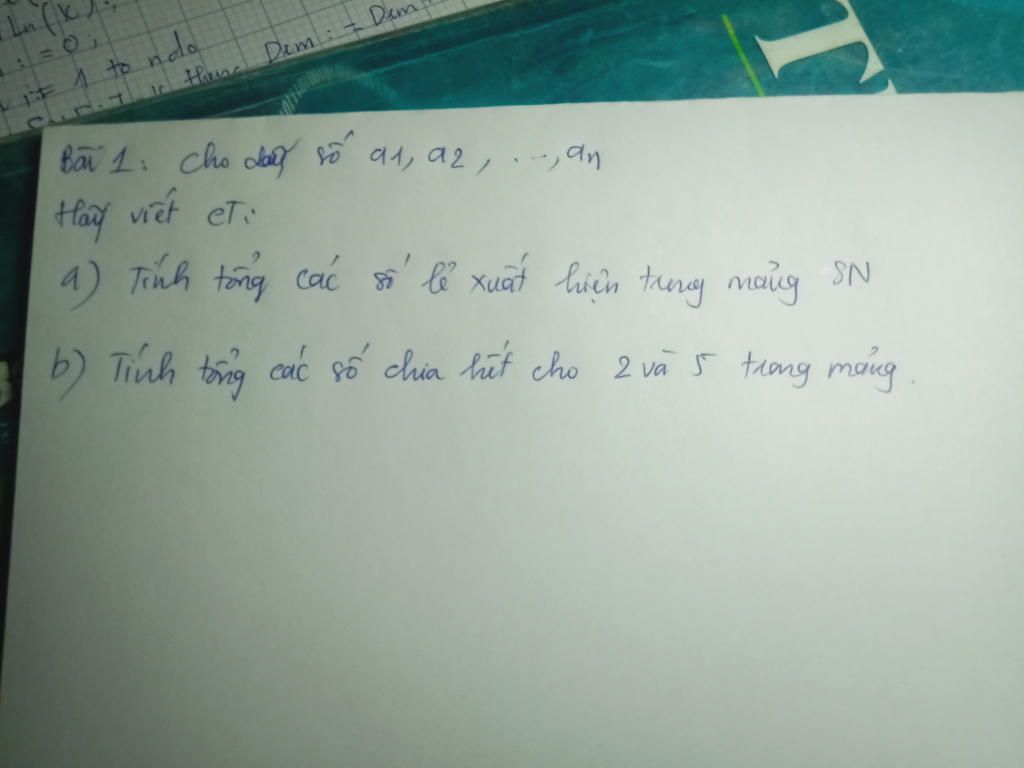 Ln(k);
:=0;
i:= 1 to n do
then Dem := Dem
T
Bài 1: Cho dãy số a1, a2, ..., an
Hãy viết CT:
a) Tính tổng các số lẻ xuất hiện trong mảng SN
b) Tính tổng các số chia hết cho 2 và 5 trong mảng.